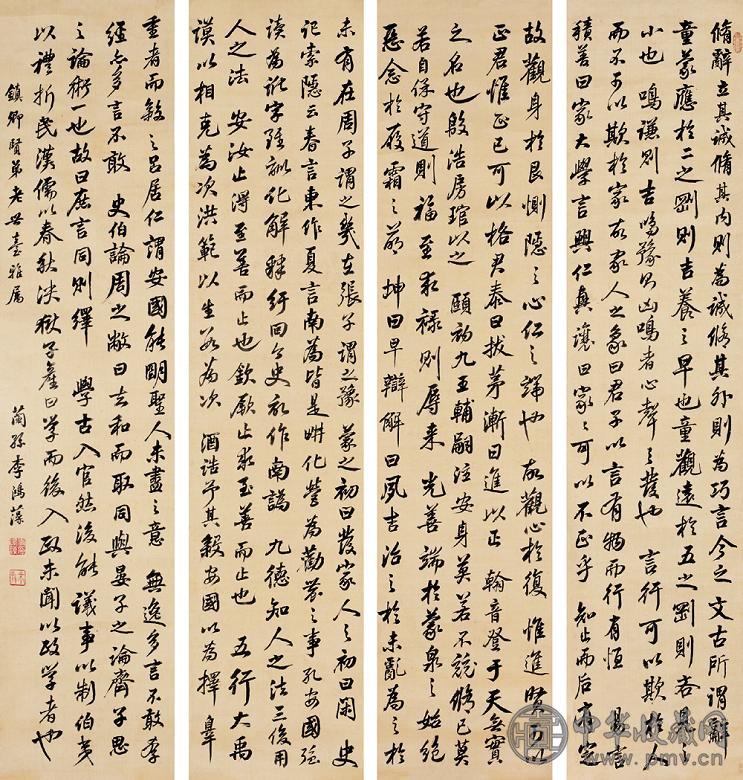 脩辭立其誠脩其内則為誠脩其外則為巧言今之文古所謂辭
童蒙應於二之剛則吉養之早也童觀遠於五之剛則吝見之
小也 鳴謙則吉鳴豫則凶鳴者心聲之發也 言行可以欺於人
而不可以欺於家故家人之象曰君子以言有物而行有恒 易言
積善曰家大學言興仁興讓曰家家可以不正乎 知止而后有定
故觀身於艮惻隱之心仁之端也故觀心於復 惟進賢可以
正君惟正己可以格君泰曰拔茅漸曰進以正 翰音登于天無實
之名也殷浩房琯以之 頤初九王輔嗣注安身莫若不競脩己莫
若自保守道則福至求禄則辱来 充善端於蒙泉之始絶
惡念於履霜之萌 坤曰早辯解曰夙吉治之於未亂為之於
未有在周子謂之幾在張子謂之豫 蒙之初曰發家人之初曰閑 史
記索隱云春言東作夏言南為皆是耕化營為勸農之事孔安國强
讀為訛字雖訓化解釋紆回今史記作南譌 九德知人之法三俊用
人之法 安汝止得至善而止也欽厥止求至善而止也 五行大禹
謨以相克為次洪範以生數為次 酒誥予其殺安國以為擇辠
重者而殺之吕居仁謂安國能明聖人未盡之意 無逸多言不敢孝
經亦多言不敢 史伯論周之敝曰去和而取同與晏子之論齊子思
之論衛一也故曰庶言同則繹 學古入官然後能議事以制伯夷
以禮折民漢儒以春秋決獄子産曰學而後入政未聞以政學者也
鎮卿賢弟老世臺雅屬 蘭孫李鴻藻
中华收藏网
www.pmv.cn